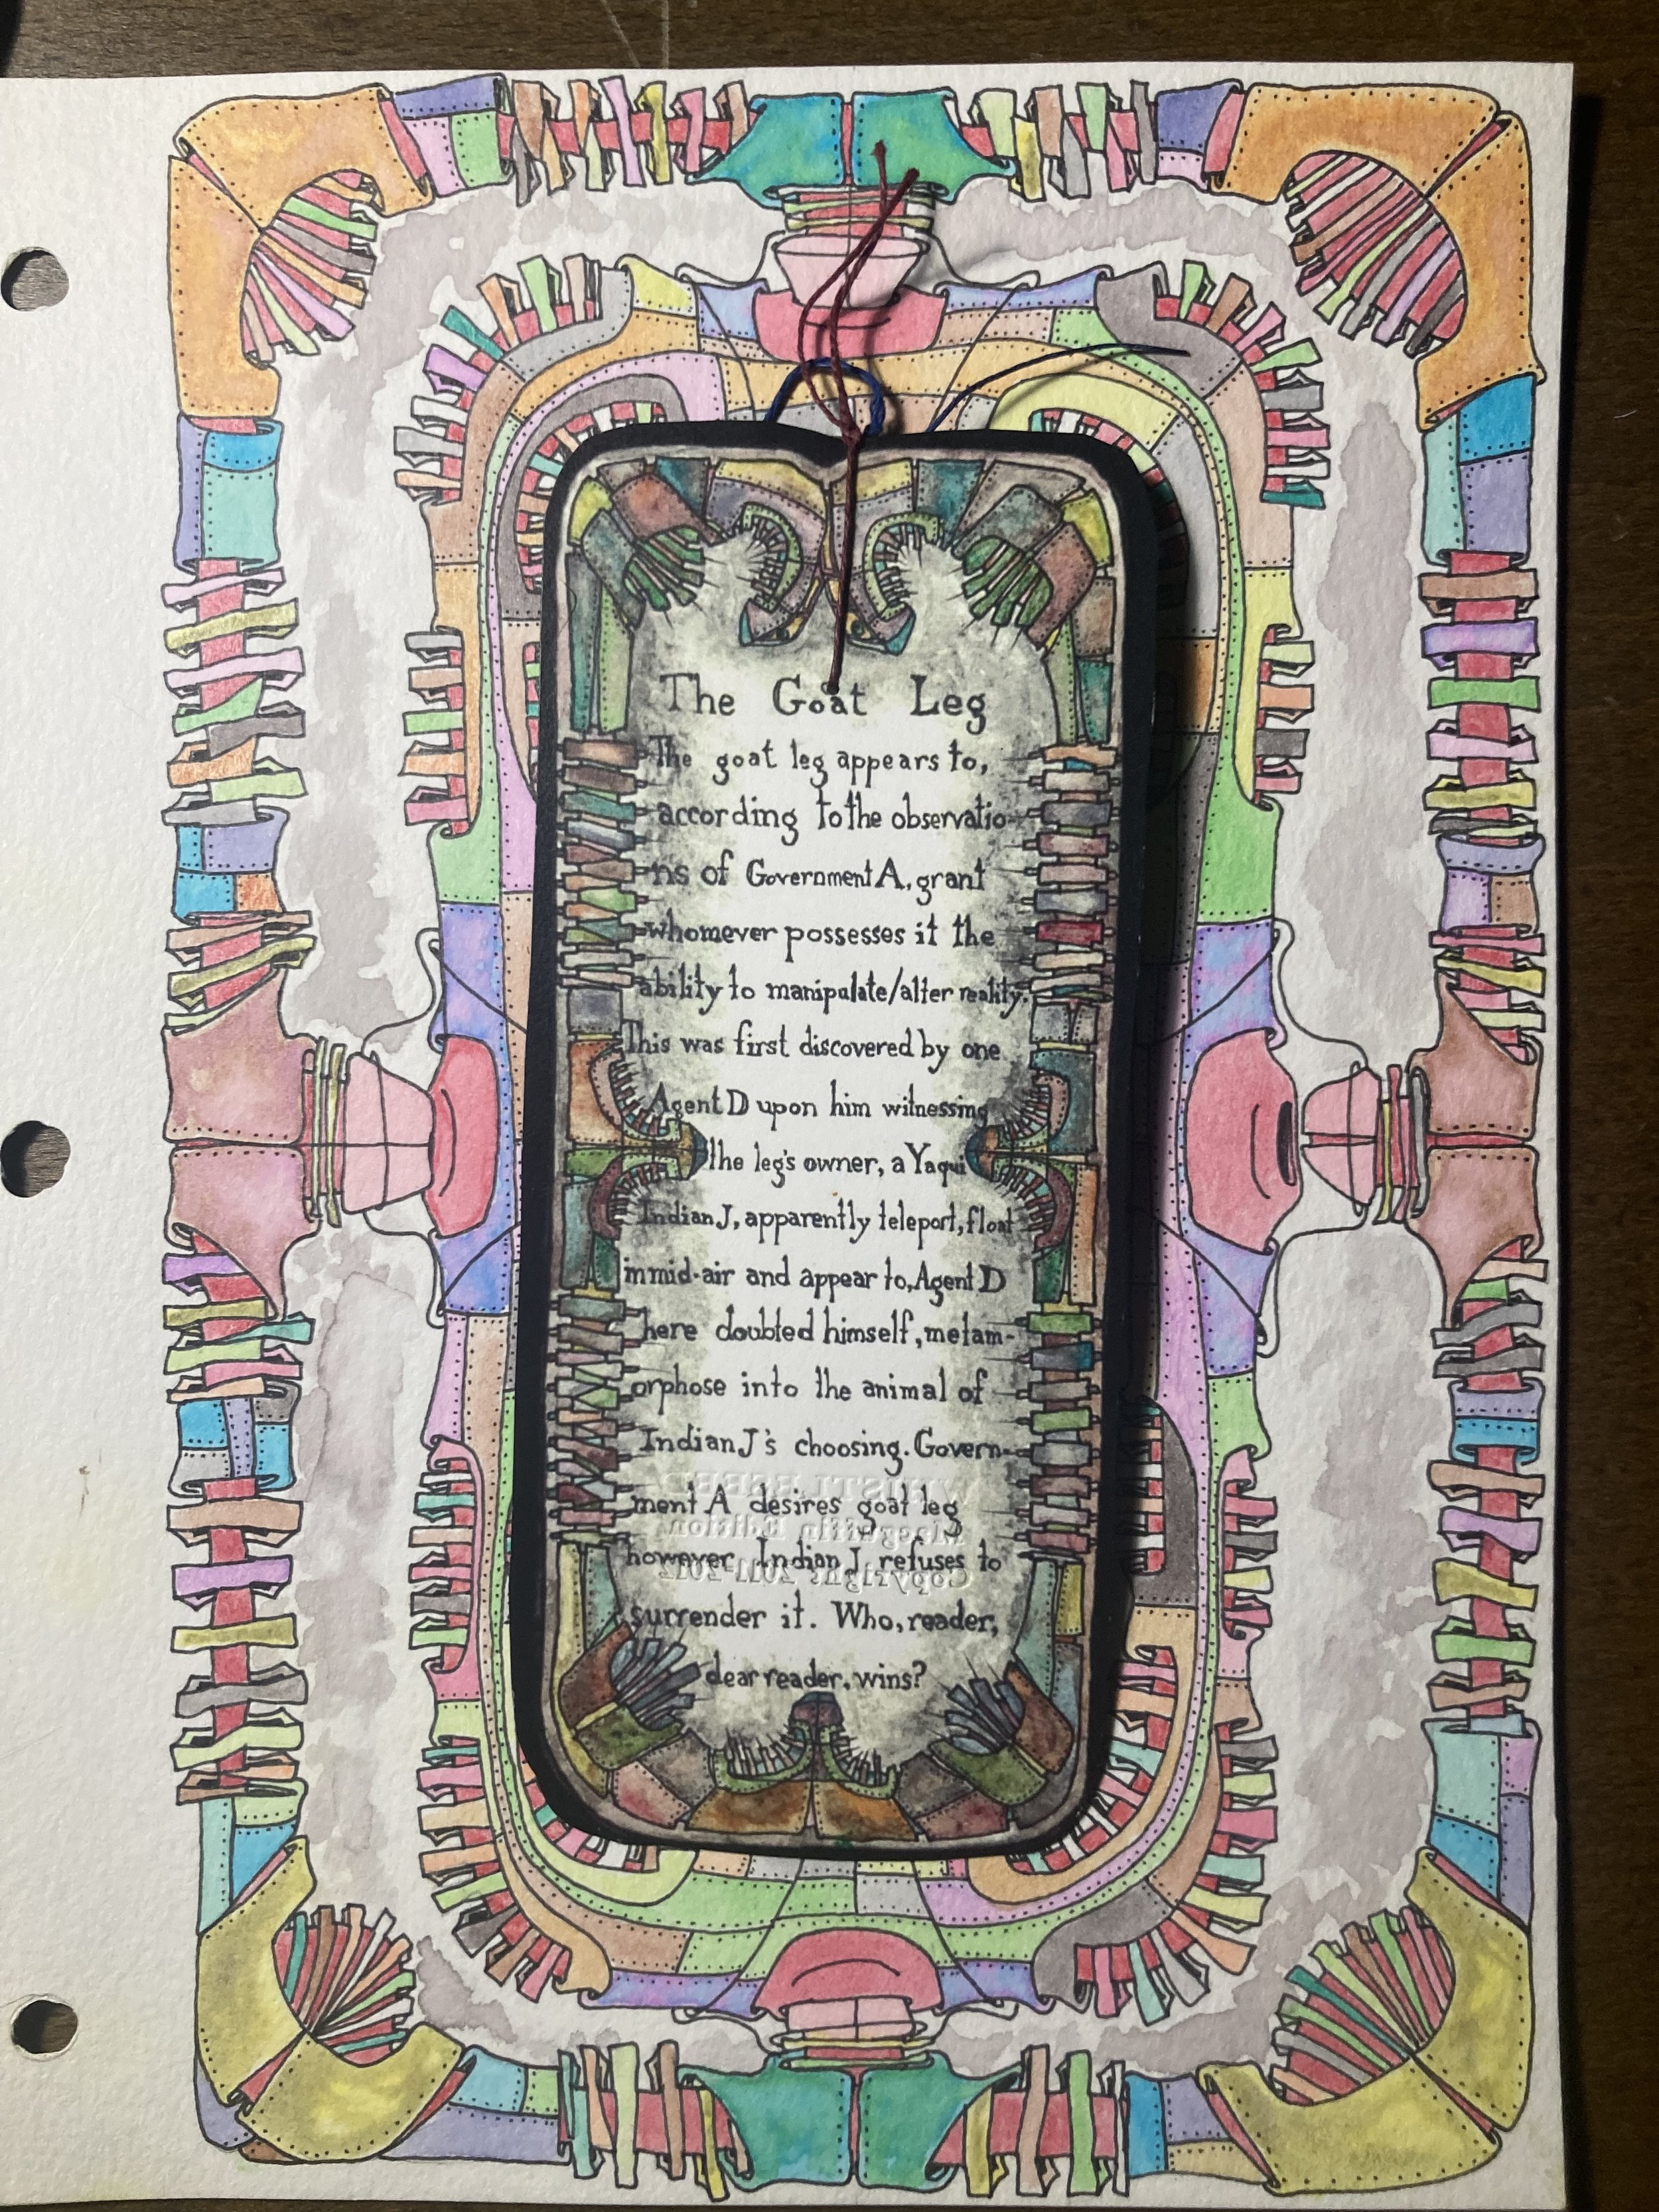 The Goat Leg
The goat leg appears to,
according to the observatio-
ns of Government A, grant
whomever possesses it the
ability to manipulate/alter reality.
This was first discovered by one
Agent D upon him witnessing
the leg's owner, a Yaqui
Indian J, apparently teleport, float
in mid-air and appear to, Agent D
here doubted himself, metam-
orphose into the animal of
Indian J's choosing. Govern-
ment A desires goat leg
however, Indian J refuses to
surrender it. Who, reader,
dear reader, wins?
WHISTLEFEED
Macguffin Edition
Copyright 2011-2012